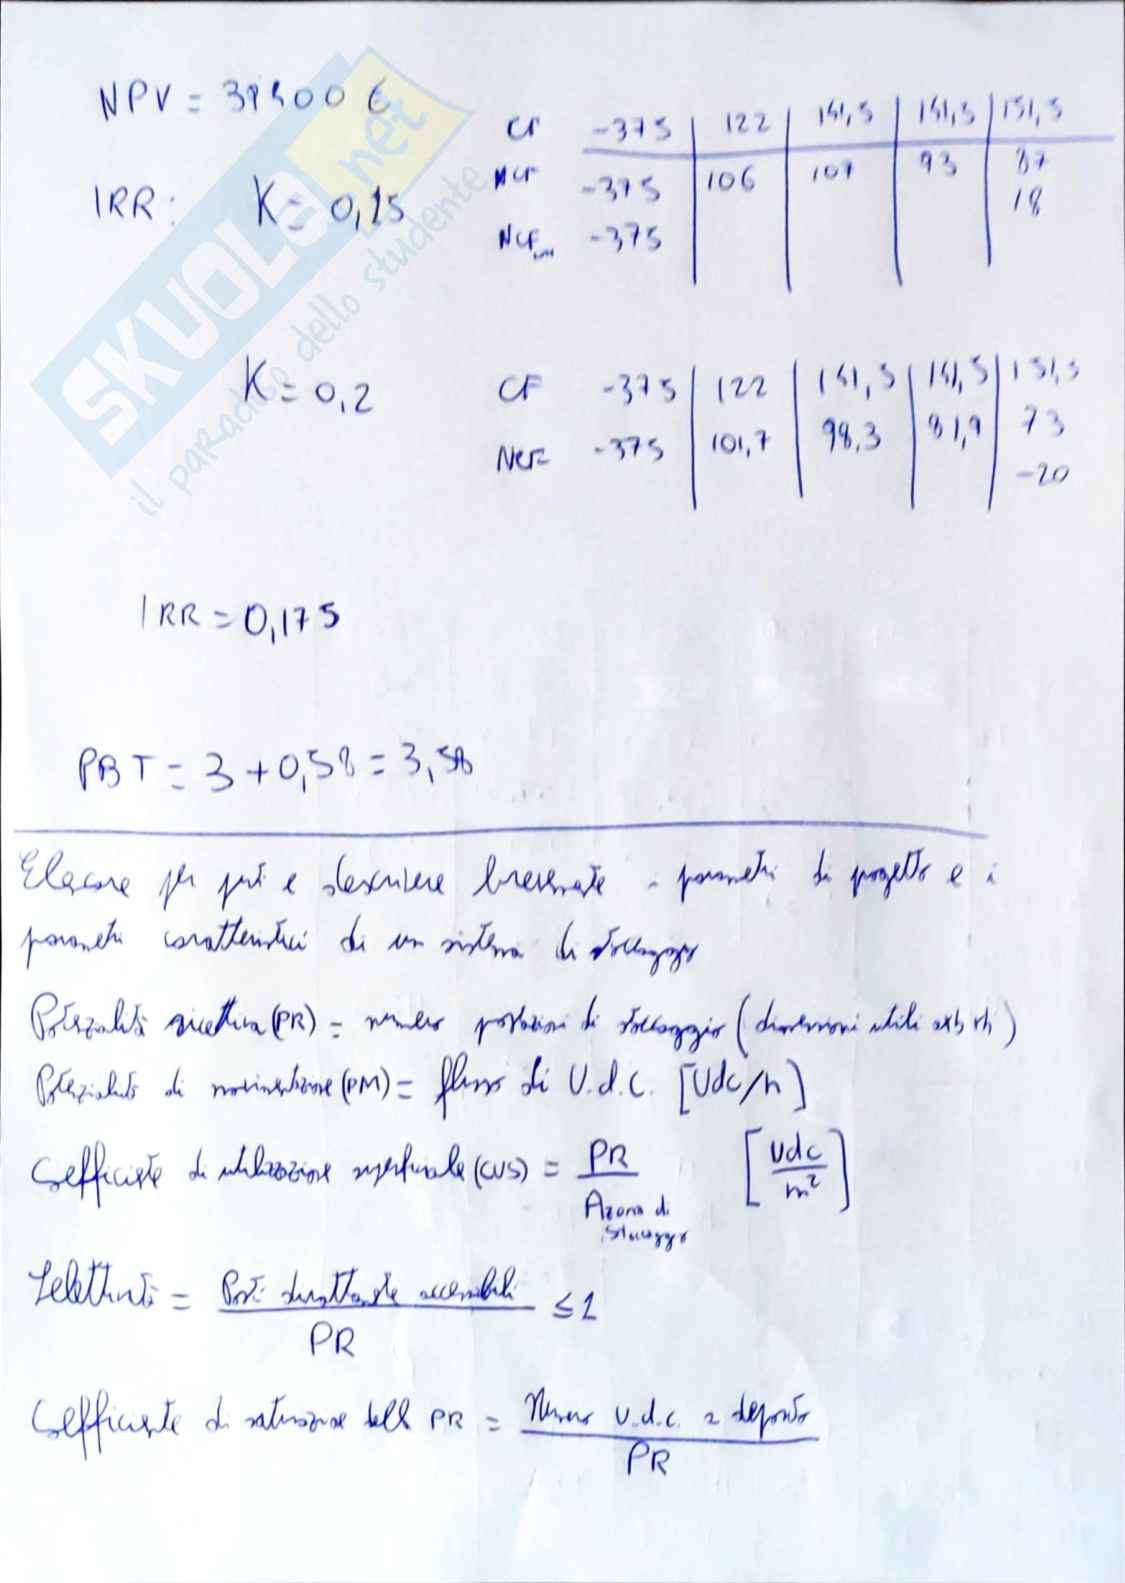 SKUOLA.net
il paradiso dello studente
NPV = 39400 €
CF -375 122 141,5 141,5 151,5
IRR: K = 0,15
NCF -375 106 107 93 87
18
NCF -375
K = 0,2
CF -375 122 141,5 141,5 151,5
NCF -375 101,7 98,3 81,9 73
-20
IRR = 0,175
PBT = 3 + 0,58 = 3,58
Elencare per punti e descrivere brevemente i parametri di progetto e i
parametri caratteristici di un sistema di stoccaggio
Potenzialità ricettiva (PR) = numero postazioni di stoccaggio (dimensioni utili axbxh)
Potenzialità di movimentazione (PM) = flusso di U.d.C. [Udc/h]
Coefficiente di utilizzazione superficiale (CUS) = PR / A zona di stoccaggio [Udc/m²]
Selettività = Posti direttamente accessibili / PR ≤ 1
Coefficiente di saturazione della PR = Numero U.d.C. a deposito / PR